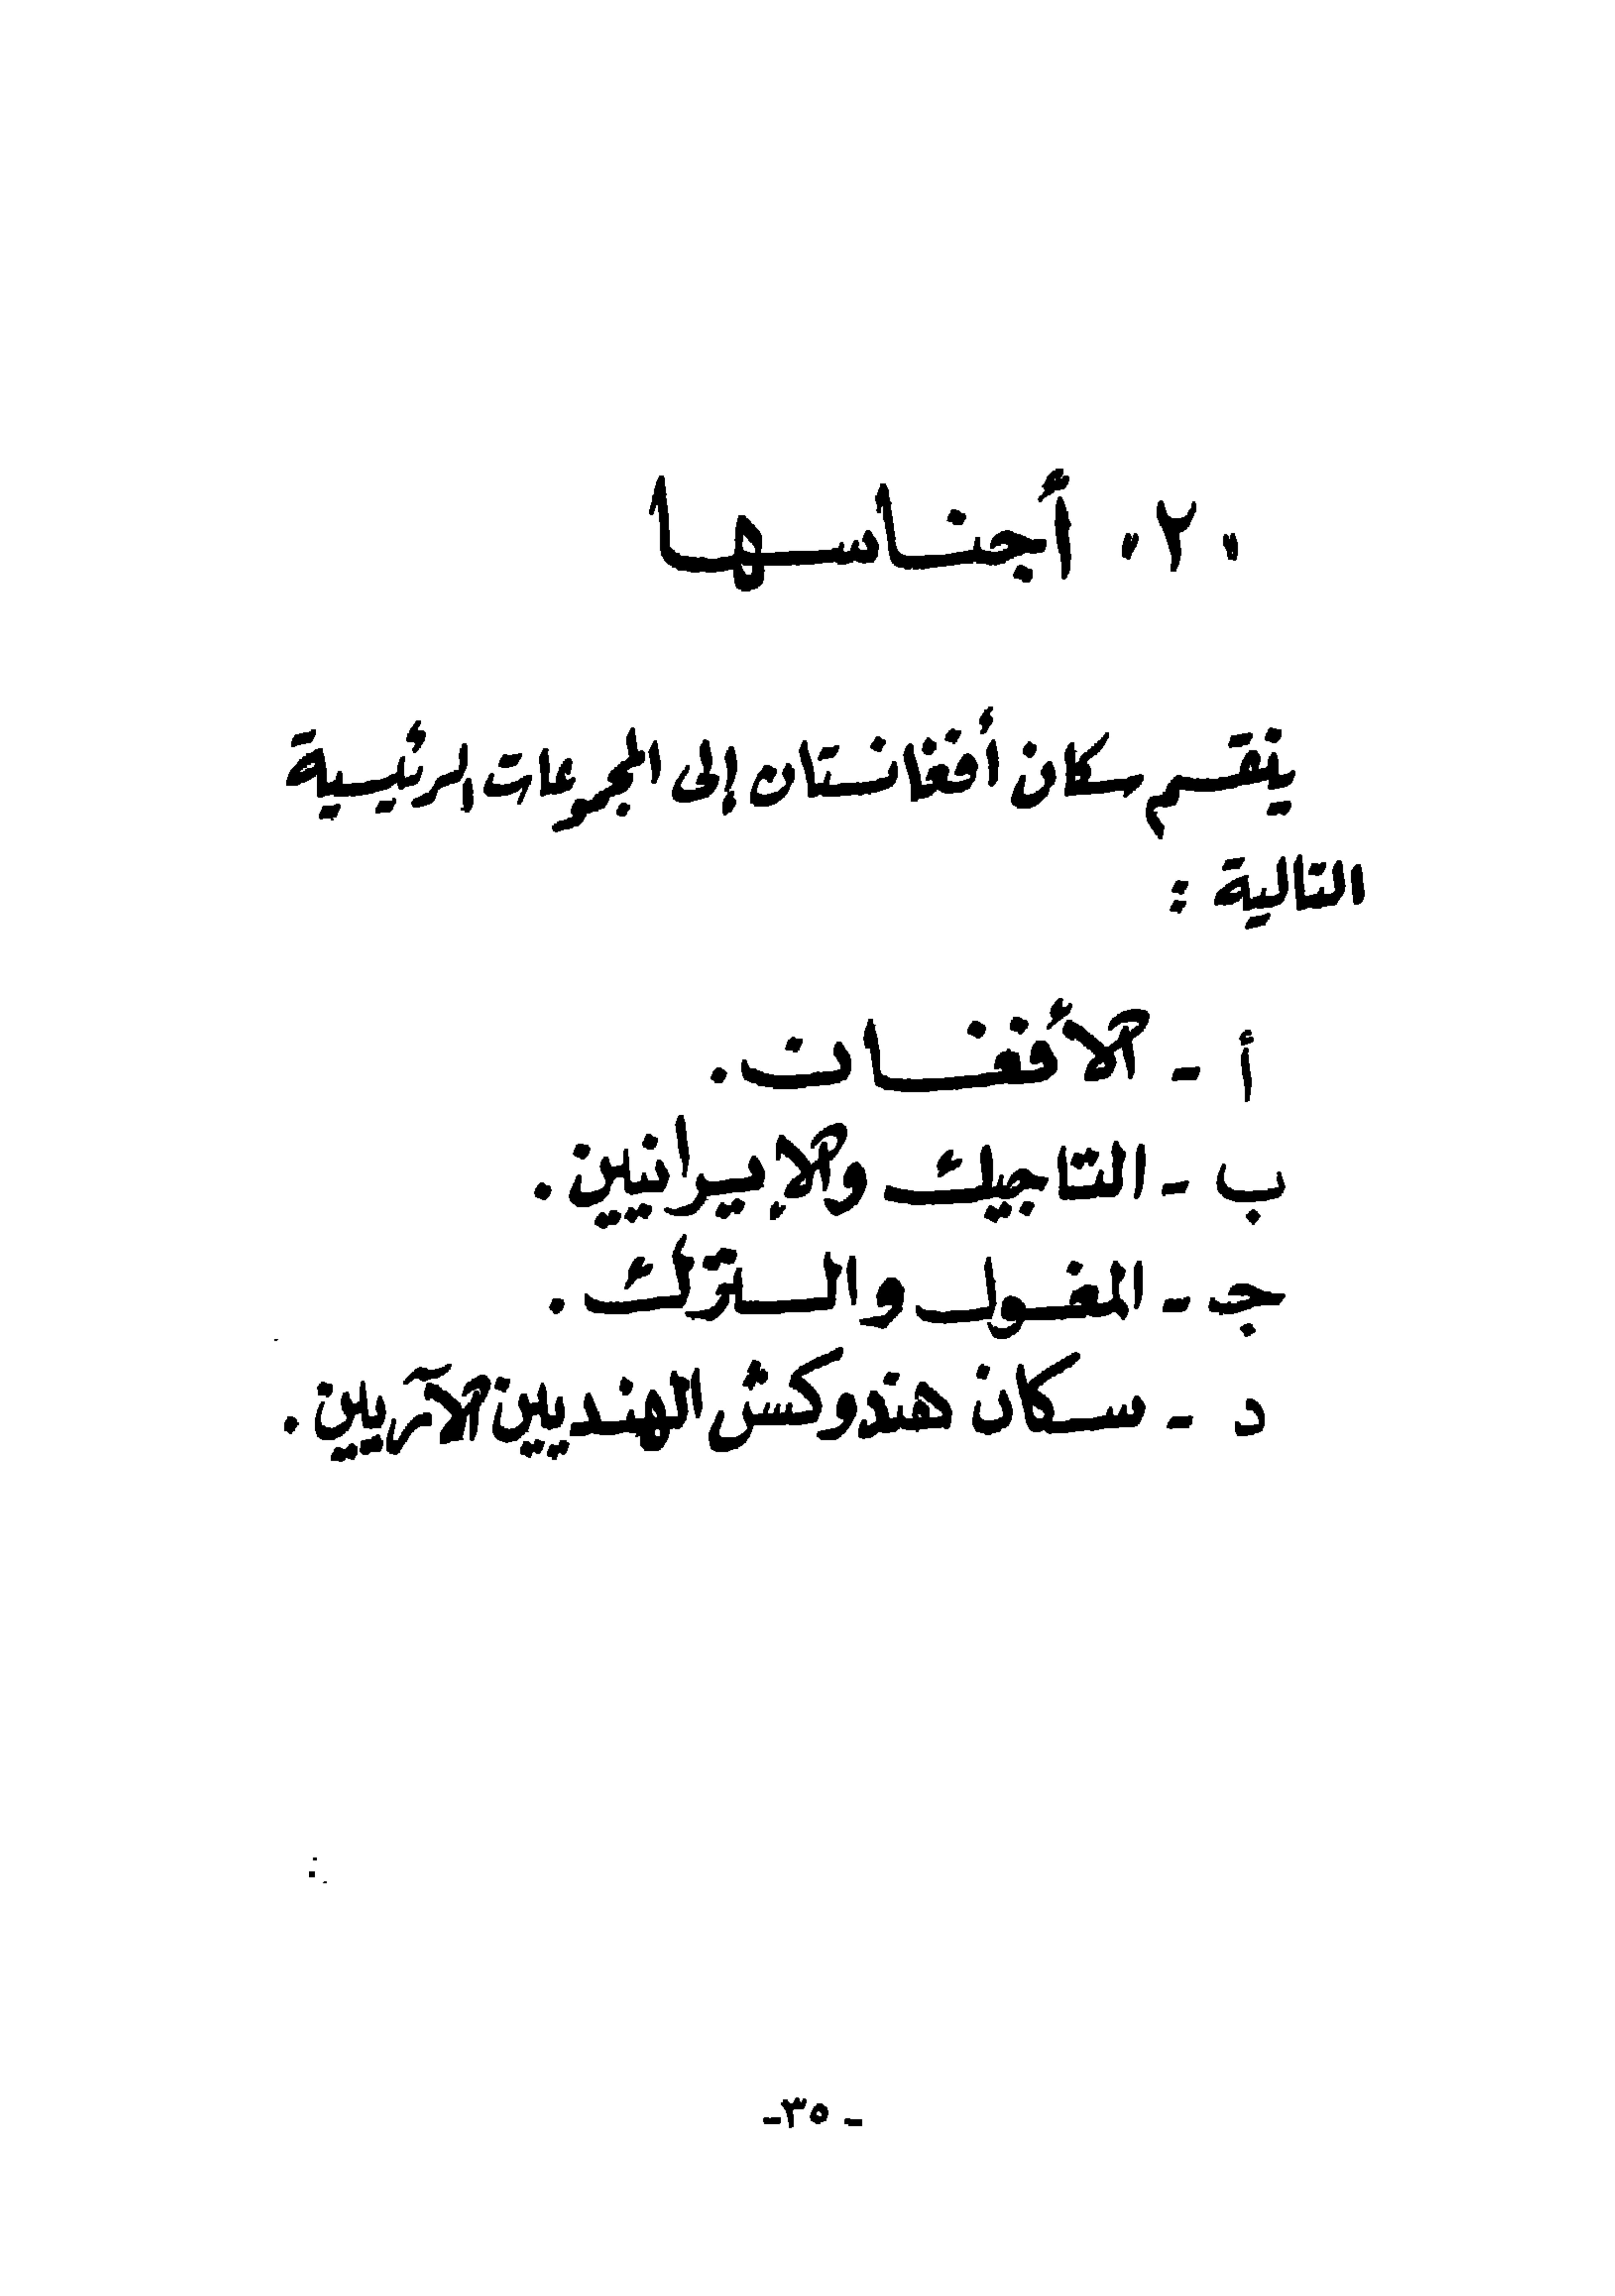 "٢" أجناسها
ينقسم سكان أفغانستان إلى المجموعات الرئيسية
التالية :
أ - الأفغان.
ب - التاجيك والإيرانيين.
جـ - المغول والترك.
د - سكان هندوكش الهنديين الآريين.
- ٣٥ -